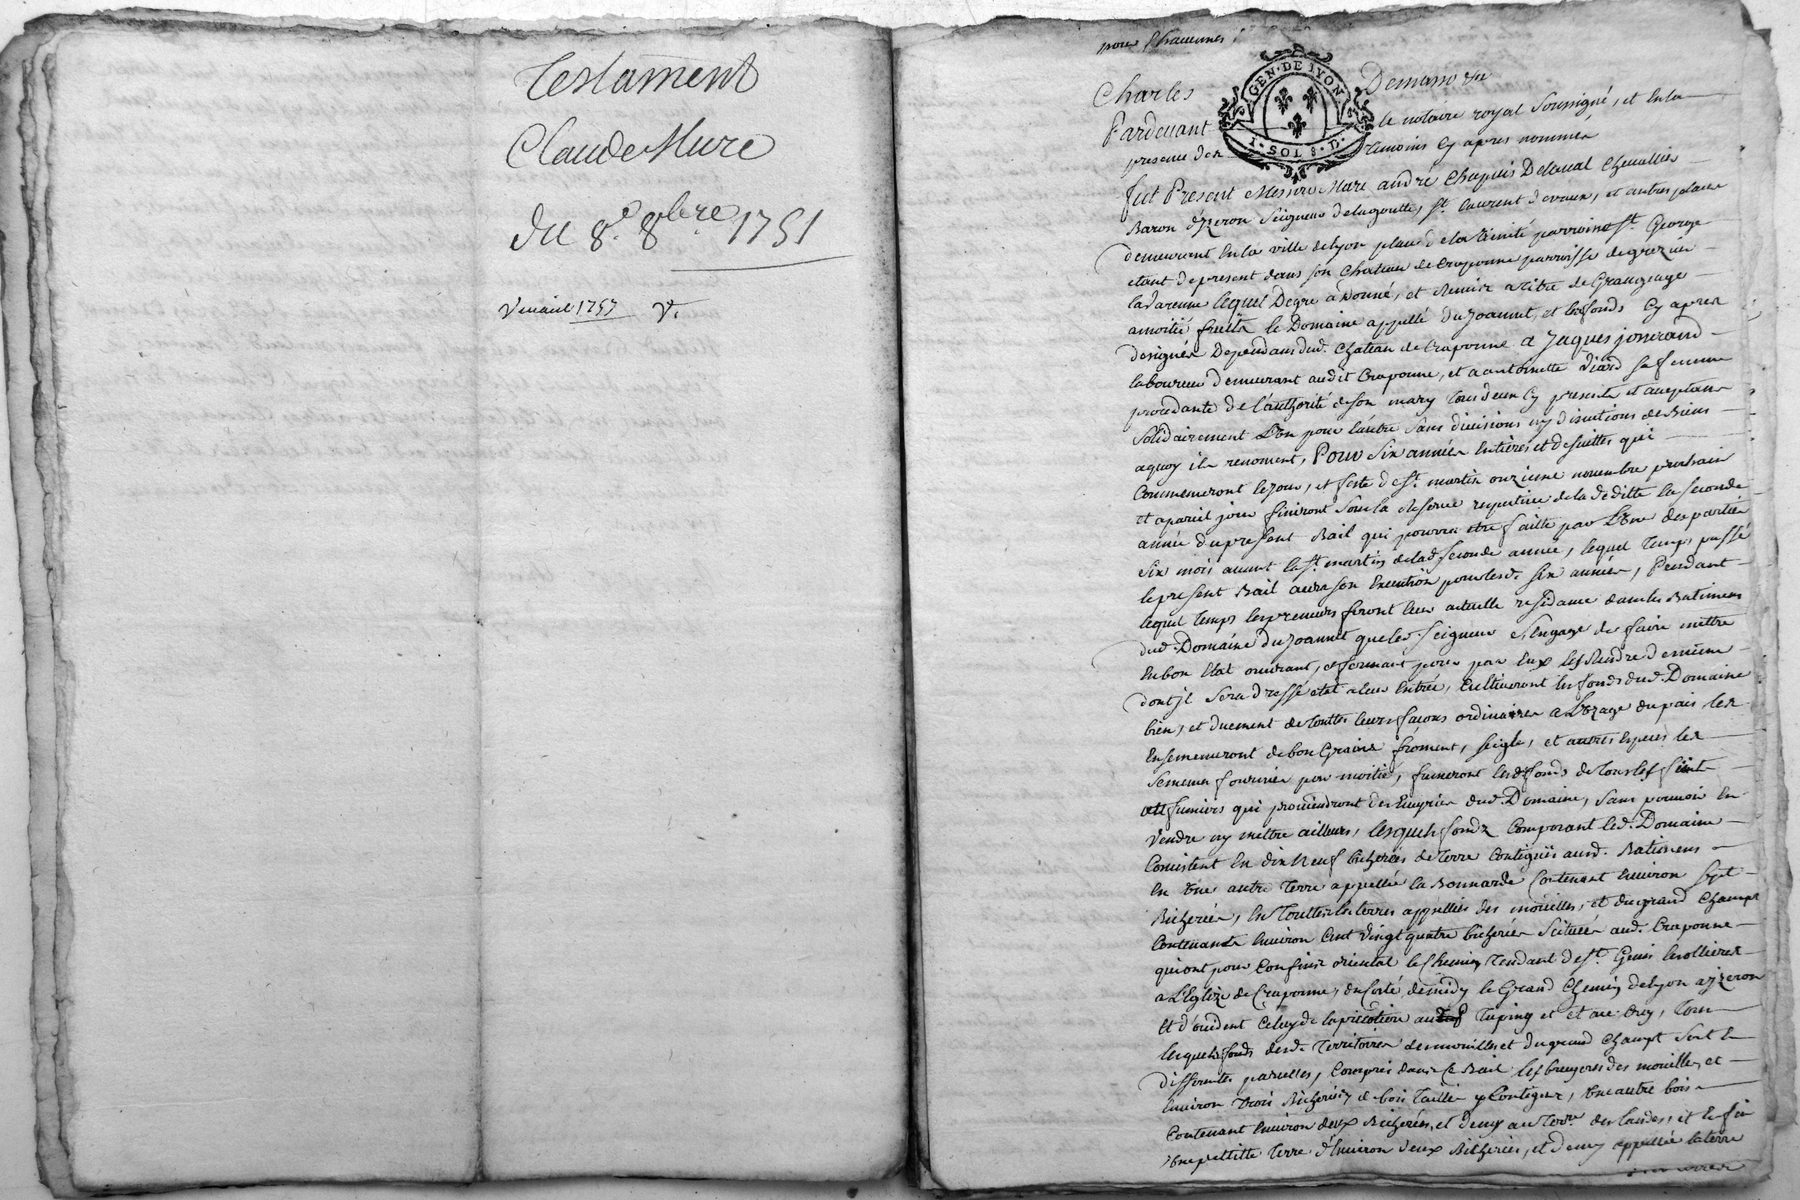 Testament
Claude Mure
du 8e. 8bre 1751
1757 V.
pour
Charles Demasso
GEN·DE LYON
I·SOL 8·D·
Pardevant le notaire royal soussigné, et en la
presence des temoins cy apres nommés
fut Present Messire Marc andré Chapuis Delaval Chevallier
Baron d'yzeron Seigneur delagoutte, St. laurent devaux, et autres places
demeurant en la ville de lyon place de la trinité parroisse St. George
etant de present dans son Chateau de Craponne parroisse de grezieu
lavarenne lequel Degré a Donné, et Remis a titre de Grangeage
a moitié fruits le Domaine appellé du Joannet, et les fonds cy apres
designés Dependans dud. Chateau de Craponne a Jaques jomrand
laboureur demeurant audit Craponne, et a antoinette Viard sa femme
procedante de l'authorité de son mary tous deux cy presents et acceptans
Solidairement L'un pour l'autre sans divisions ny discutions de Biens
a quoy ils renoncent, Pour Six années entieres et desuittes qui
Commenceront le jour, et feste de St. martin onzieme novembre prochain
et a pareil jour finiront sous la Reserve respective de la deditte la seconde
année du present Bail qui pourra etre faitte par L'une des parties
Six mois avant la St. martin de lad. seconde année, lequel temps passé
le present Bail aura son Execution pour lesd. six années, Pendant
lequel temps les preneurs feront leur actuelle residence dans les Batimens
dud. Domaine du Joannet que led. seigneur s'engage de faire mettre
en bon etat ouvrant, et fermant pour par eux les Rendre de meme
dont jl sera dressé etat a leur entrée, Cultiveront les fonds dud. Domaine
bien, et duement de touttes leurs façons ordinaires a L'uzage du pais les
Ensemenceront de bon Grains froment, seigle, et autres especes les
semences fournies par moitié, fumeront lesd. fonds de tous les
fumiers qui proviendront des Ecuyries dud. Domaine, sans pouvoir en
vendre ny mettre ailleurs, lesquels fondz Composant led. Domaine
Consistent en dix Neuf bicherées de terre Contigues aud. Batimens
en Une autre terre appellée la Bonnarde Contenant environ sept
Bicherées, en Touttes les terres appellées des mouilles, et du grand Champt
Contenants environ Cent vingt quatre bicherées Scituées aud. Craponne
qui ont pour Confins oriental le Chemin Tendant de St. Genis les ollieres
a L'Eglize de Craponne, du Costé de midy le Grand Chemin de lyon a yzeron
Et d'occident Celuy de la au Tupiny et Tous
lesquels fonds desd. Territoires des mouilles et du grand Champt sont en
differentes parcelles, Compris dans ce Bail les bruyeres des mouilles, et
environ trois Bicherées de bois Taillis y Contigues, Une autre bois
Contenant environ deux Bicherées, et demy au Terre. des landes, et enfin
Une petitte Terre d'Environ deux Bicherées, et demy appellée la terre